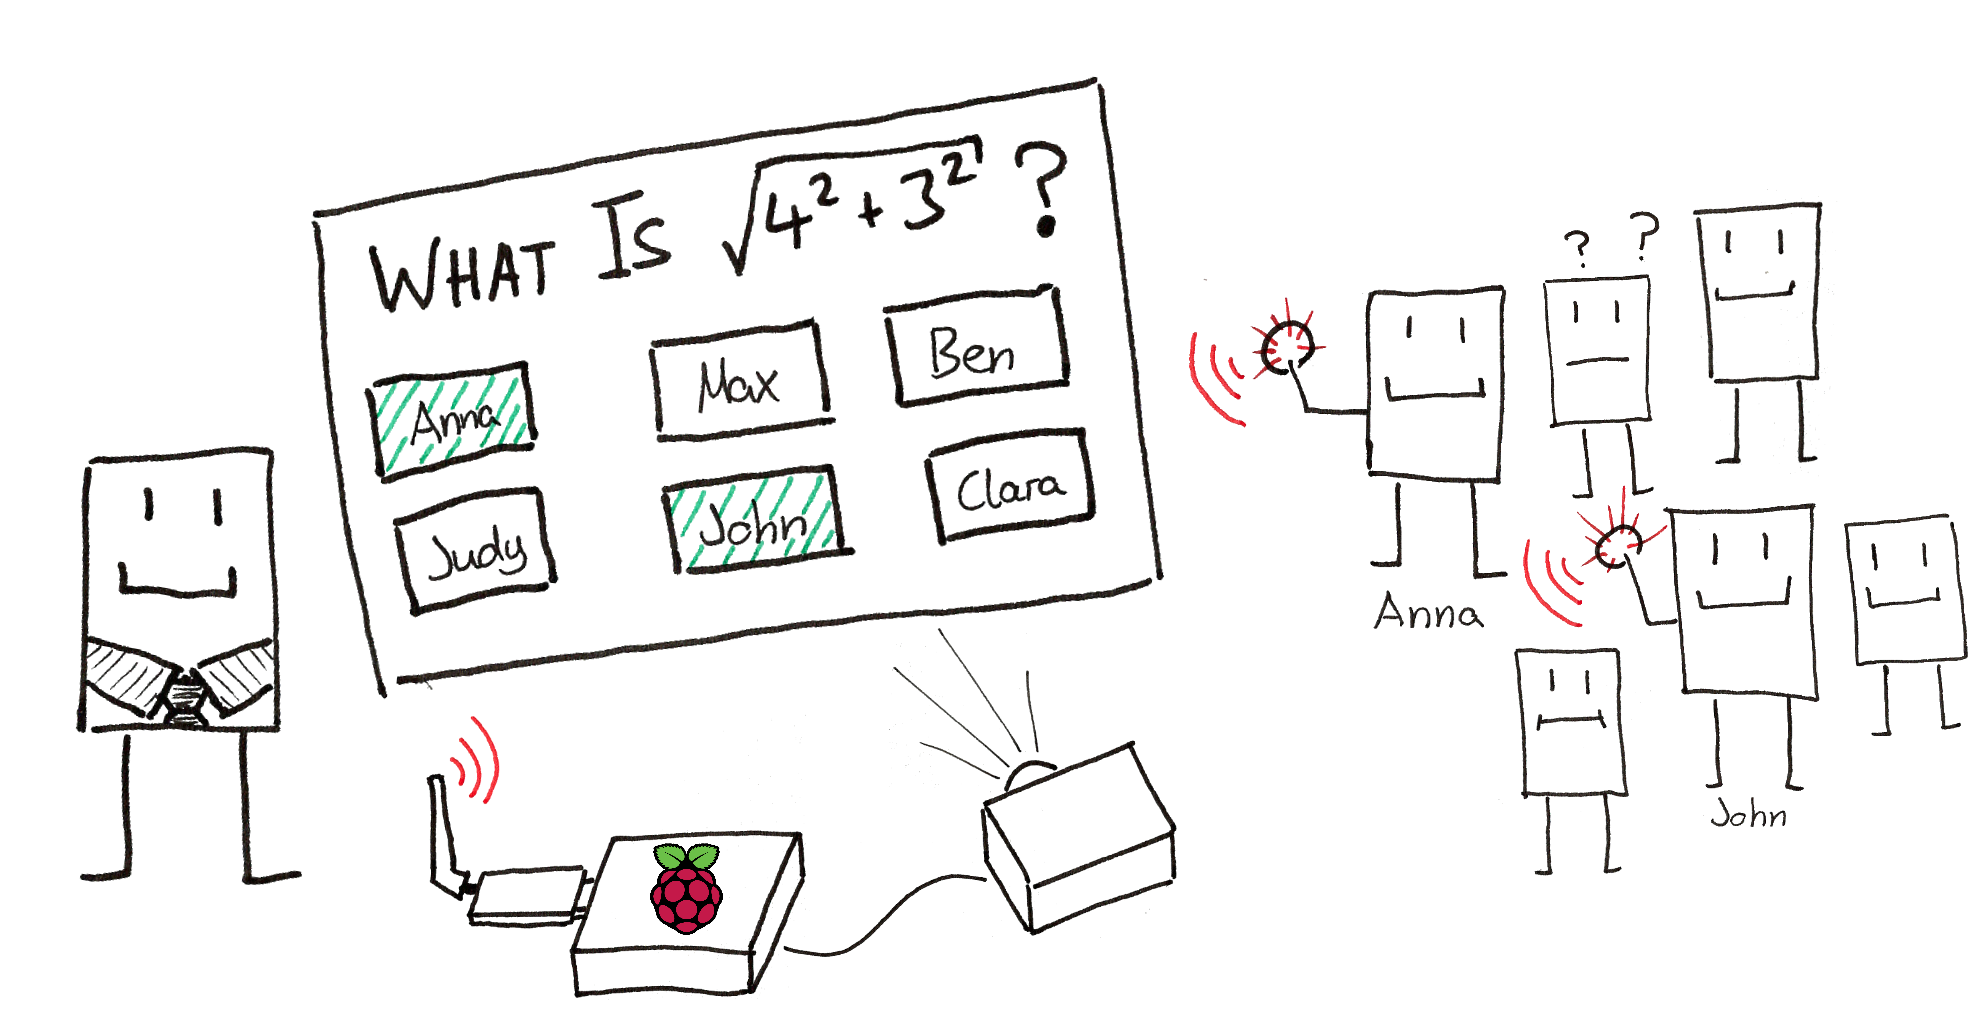 WHAT IS √4² + 3² ?
Anna Max Ben
Judy John Clara
? ?
Anna
John